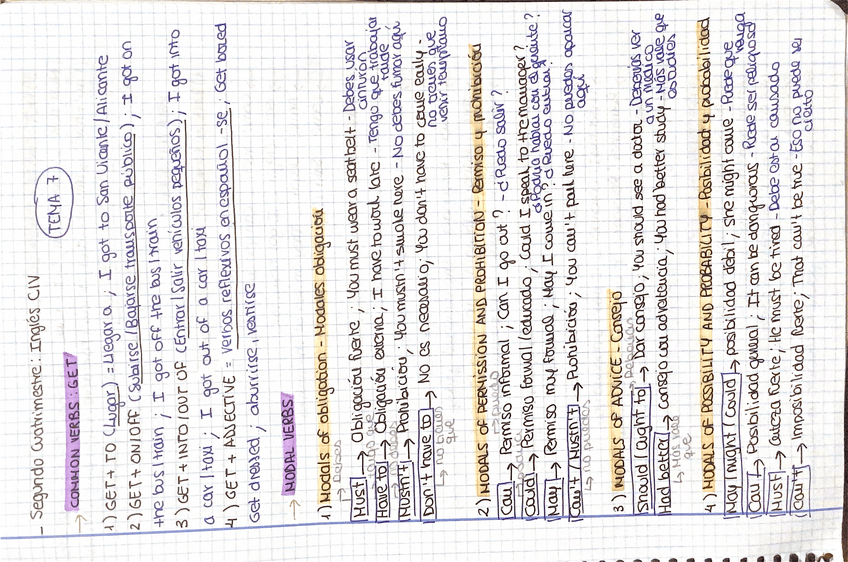 - Segundo Cuatrimestre: Inglés CIV
TEMA 7
→ COMMON VERBS: GET
1) GET + TO (Lugar) = Llegar a ; I got to San Vicente/Alicante
2) GET + ON/OFF (Subirse/Bajarse transporte público) ; I got on
the bus/train ; I got off the bus/train
3) GET + INTO/OUT OF (Entrar/Salir vehículos pequeños) ; I got into
a car/taxi ; I got out of a car/taxi
4) GET + ADJECTIVE = Verbos reflexivos en español -se ; Get bored
Get dressed, aburrirse, vestirse
→ MODAL VERBS
1) Modals of obligation - Modales obligación
→ Debes
Must → Obligación fuerte ; You must wear a seatbelt - Debes usar
cinturón
→ Tengo que
Have to → Obligación externa ; I have to work late - Tengo que trabajar
tarde
→ No debes
Mustn't → Prohibición ; You mustn't smoke here - No debes fumar aquí
Don't have to → No es necesario ; You don't have to come early -
no tienes que
venir temprano
→ no tienen
que
2) MODALS OF PERMISSION AND PROHIBITION - Permiso y prohibición
Can → Permiso informal ; Can I go out? - ¿Puedo salir?
→ puedo
Could → Permiso formal/educado ; Could I speak to the manager?
¿Podría hablar con el gerente?
May → Permiso muy formal ; May I come in? ¿Puedo entrar?
Can't / Mustn't → Prohibición ; You can't park here - No puedes aparcar
aquí
→ no puedes
3) MODALS OF ADVICE - Consejo
Should / Ought to → Dar consejo ; You should see a doctor - Deberías ver
un médico
Had better → Consejo con advertencia ; You had better study - Más vale que
estudies
→ Más vale
que
4) MODALS OF POSSIBILITY AND PROBABILITY - Posibilidad y probabilidad
May / might / Could → posibilidad débil ; she might come - Puede que
venga
Can → Posibilidad general ; It can be dangerous - Puede ser peligroso
Must → Certeza fuerte ; He must be tired - Debe estar cansado
Can't → Imposibilidad fuerte ; That can't be true - Eso no puede ser
cierto